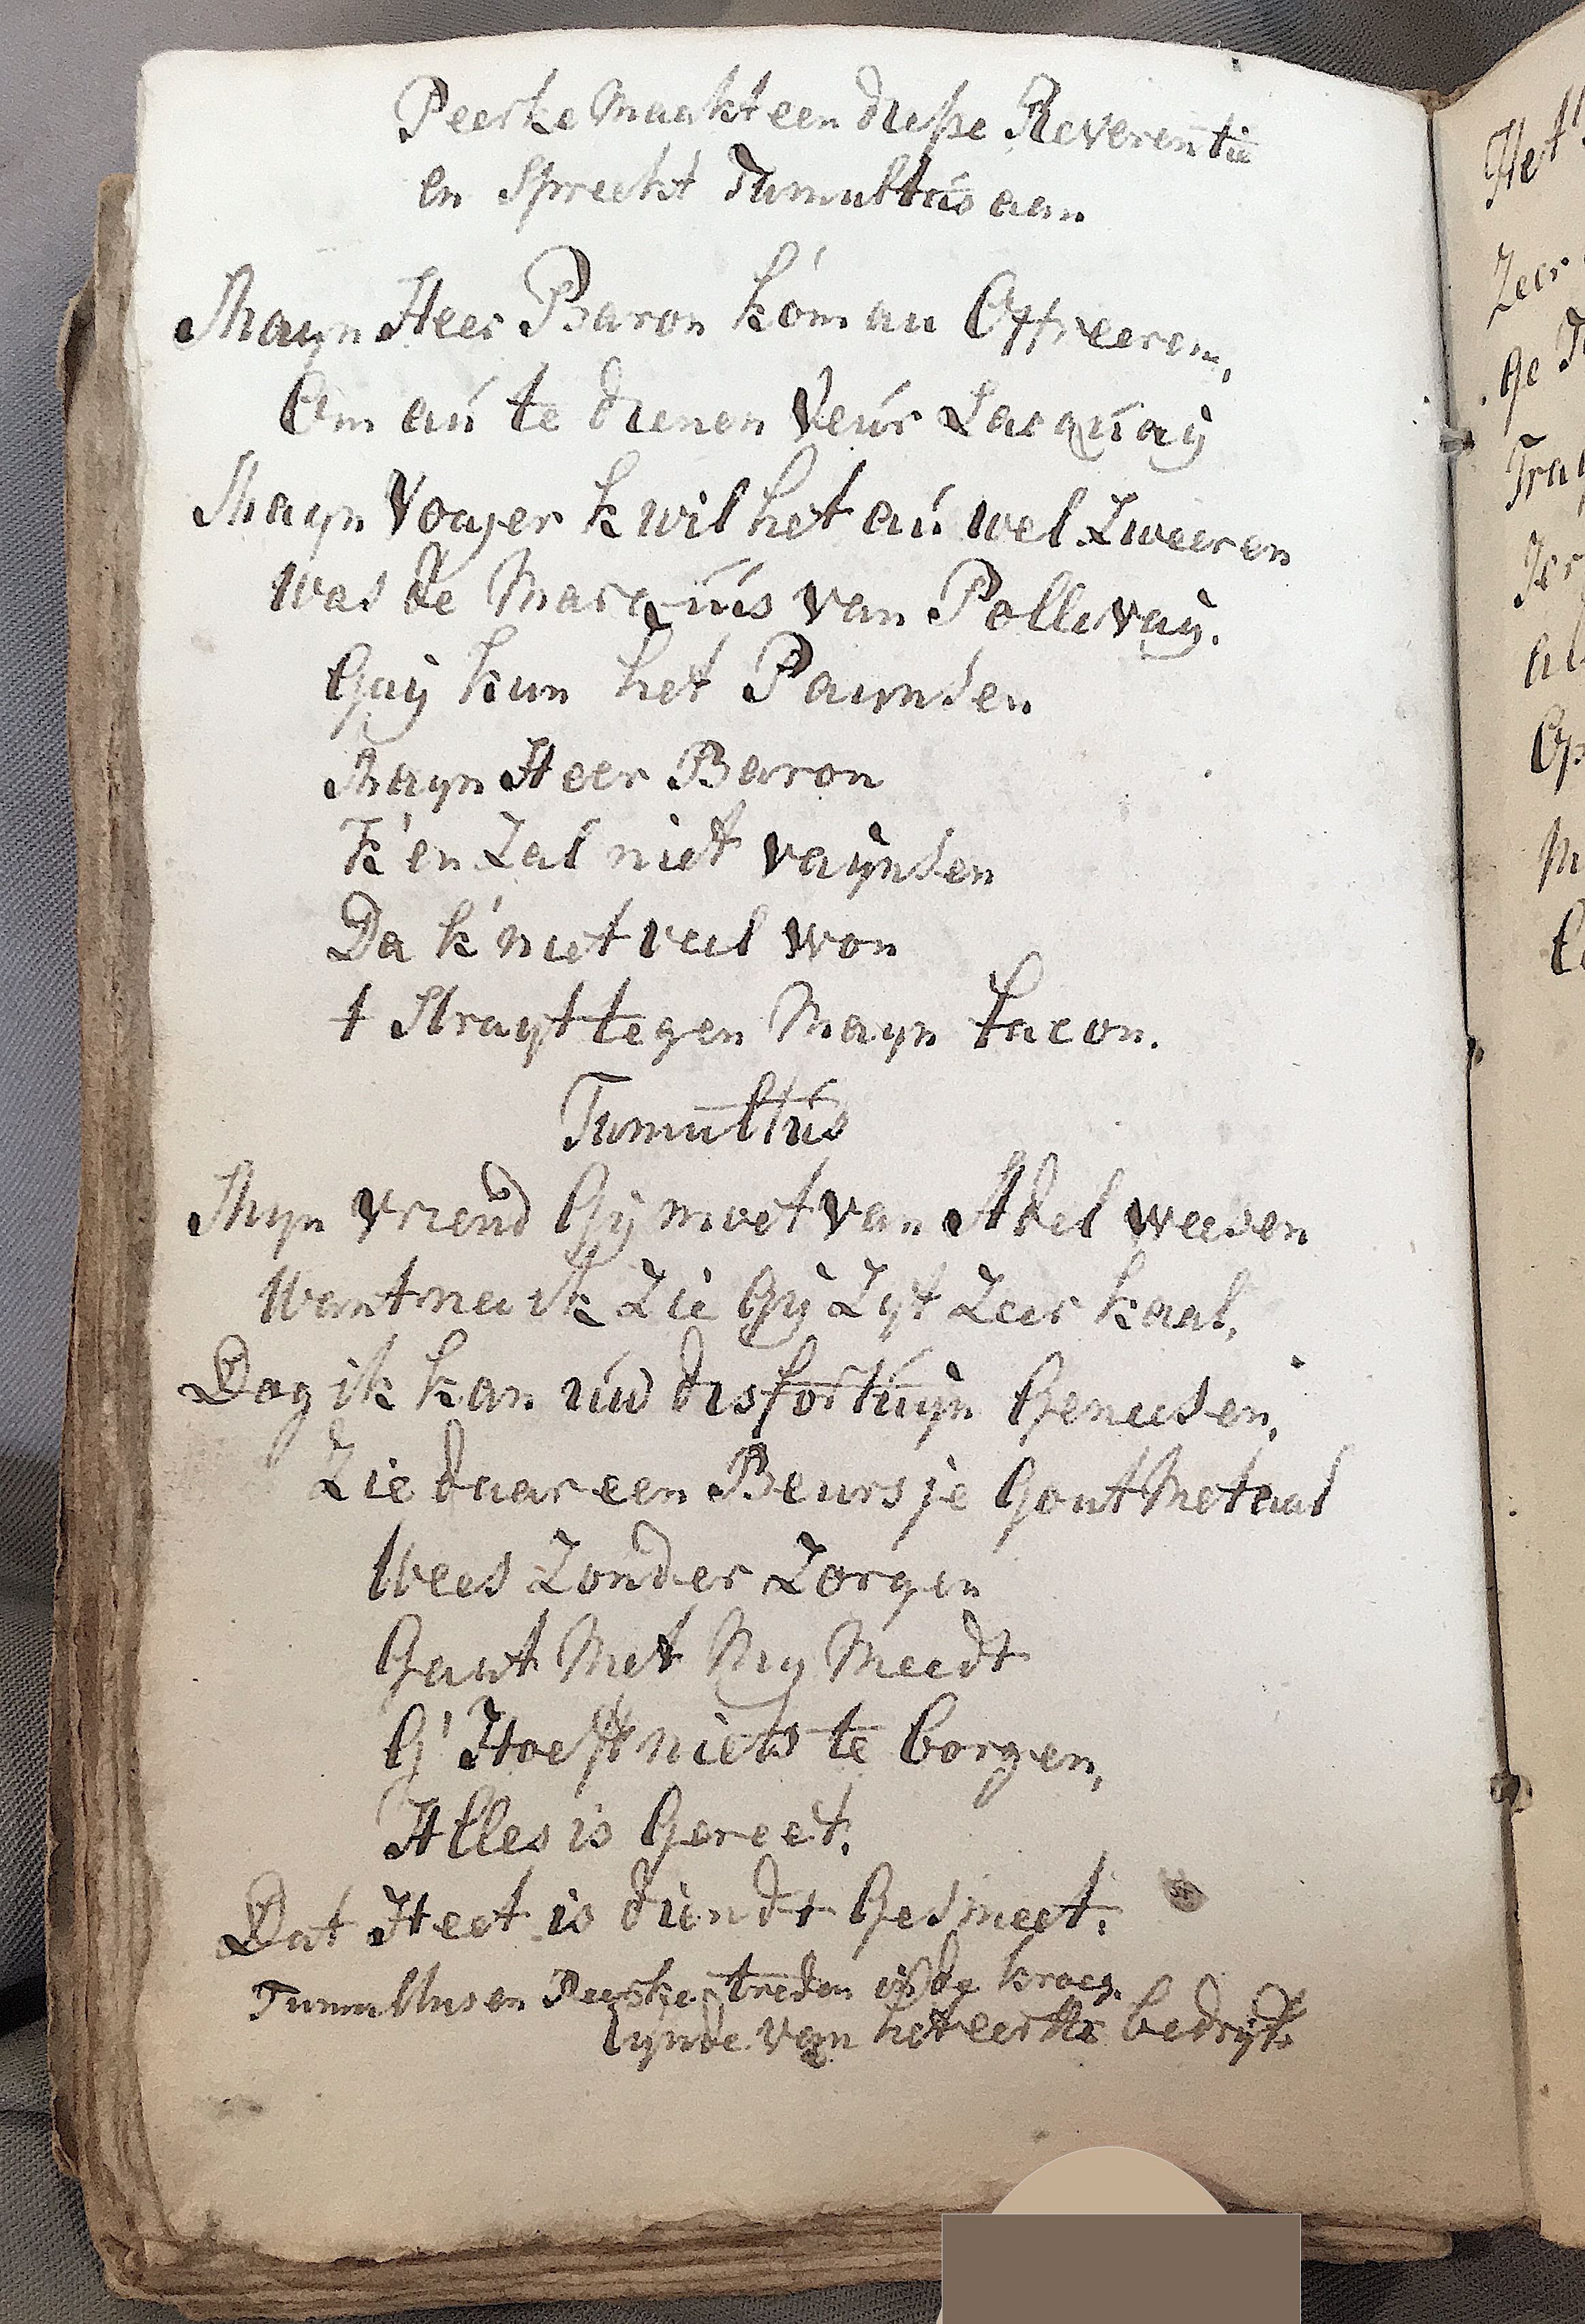 Peerke Maakt een diepe Reverentie
en Spreekt Tumultus aan
Mayn Heer Baron k'om au Offreeren,
Om au te dienen veur Lacquay
Mayn Voayer k wil het au wel Zweeren
was de Marquis van Pollevay.
Gay kun het Paynsen
Mayn Heer Baron
K'en Zal niet vaynsen
Da k'niet veel won
t Strayt tegen Mayn facon.
Tumultus
Myn vriend Gy moet van Adel weesen
Want na ik Zie Gy Zyt Zeer kaal,
Dog ik kan uw disfortuyn Geneesen,
Zie daar een Beursje Gout Metaal
Wees Zonder Zorgen
Gaat Met My Meedt
G' Hoeft niets te borgen,
Alles is Gereet.
Dat Heet is diendt Gesmeet.
Tumultus en Peerke treden in de kroeg.
Eynde van het eerste bedryf
Het
Zeer
ge